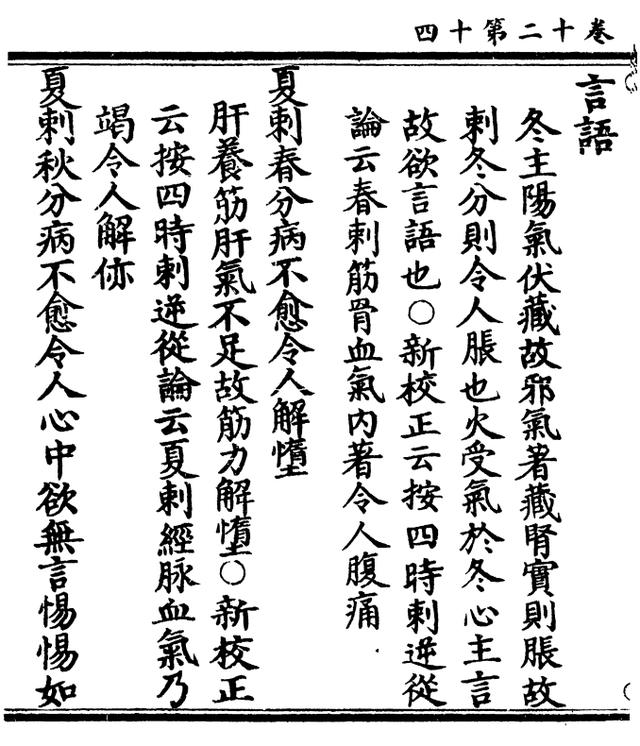 卷十二第十四
言語
冬主陽氣伏藏故邪氣著藏腎實則脹故
刺冬分則令人脹也火受氣於冬心主言
故欲言語也○新校正云按四時刺逆從
論云春刺筋骨血氣內著令人腹痛
夏刺春分病不愈令人解墯
肝養筋肝氣不足故筋力解墯○新校正
云按四時刺逆從論云夏刺經脉血氣乃
竭令人解㑊
夏刺秋分病不愈令人心中欲無言惕惕如